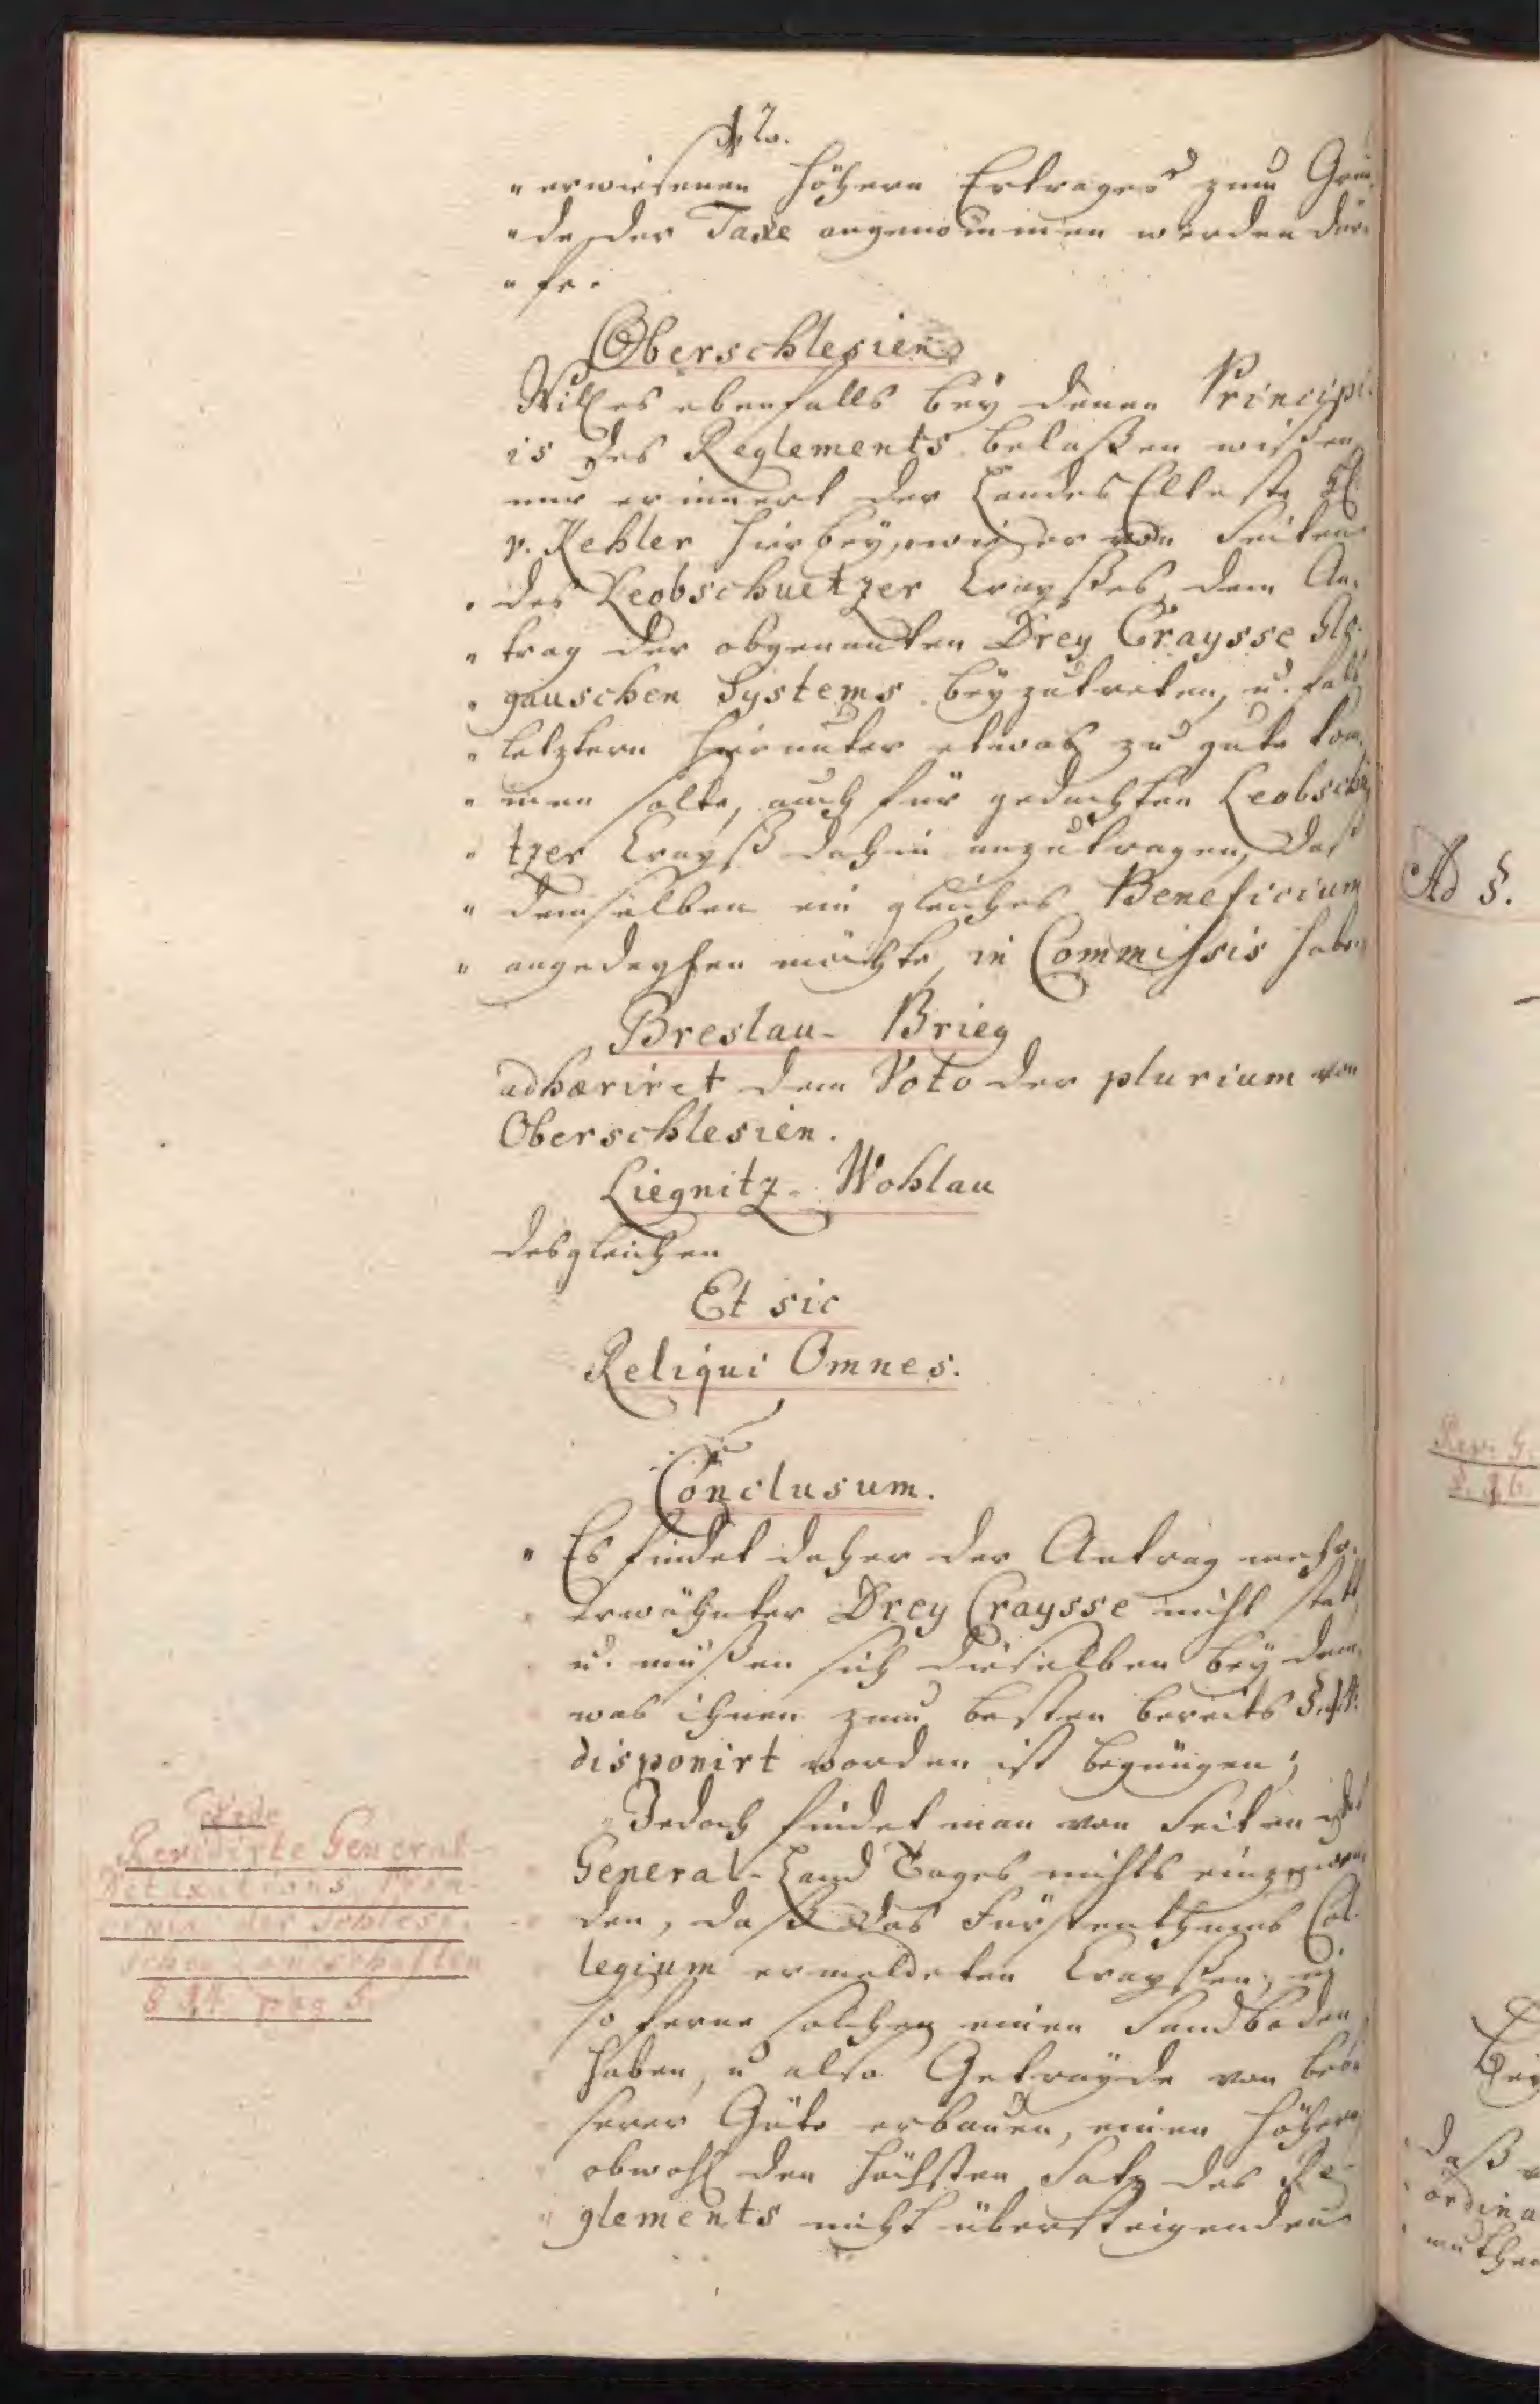 " erwiesenen höhern Ertrages zum Grun-
" de der Taxe angenommen werden dür-
" fe.
Oberschlesien
Will es ebenfalls bey denen Principi-
is des Reglements belaßen wißen,
nur erinnert der Landes Elteste H.
v. Kehler hierbey, wie er von Seiten
" des Leobschuetzer Crayßes, dem An-
" trag der obgenanten Drey Craysse
" gauschen Systems beyzutreten, u. falls
" letztern hierunter etwas zu gute kom-
" men solte, auch für gedachten Leobschü
" tzer Crayß dahin anzutragen, daß
" demselben ein gleiches Beneficium
" angedeyhen möchte, in Commissis habe.
Breslau - Brieg
adhæriret dem Voto der plurium von
Oberschlesien.
Liegnitz - Wohlau
desgleichen
Et sic
Reliqui Omnes.
Conclusum.
" Es findet daher der Antrag mehr-
" erwähnter Drey Craysse nicht statt,
" u. müßen sich dieselben bey dem,
" was ihnen zum besten bereits §.
" disponirt worden ist begnügen;
" Jedoch findet man von Seiten des
" General-Land Tages nichts einzuwen-
" den, daß das Fürstenthums Col-
" legium ermeldeten Crayßen, in
" so ferne solchen einen Sandboden
" haben, u also Getrayde von beße
" serer Güte erbauen, einen höhern
" obwohl den höchsten Satz des Re-
" glements nicht übersteigenden
Vide
Revidirte General-
Detaxations Prin-
cipia der Schlesi-
schen Landschaften
§ pag 5.
Ad §.
Rev. G.
Bey
daß
ordina
muthen